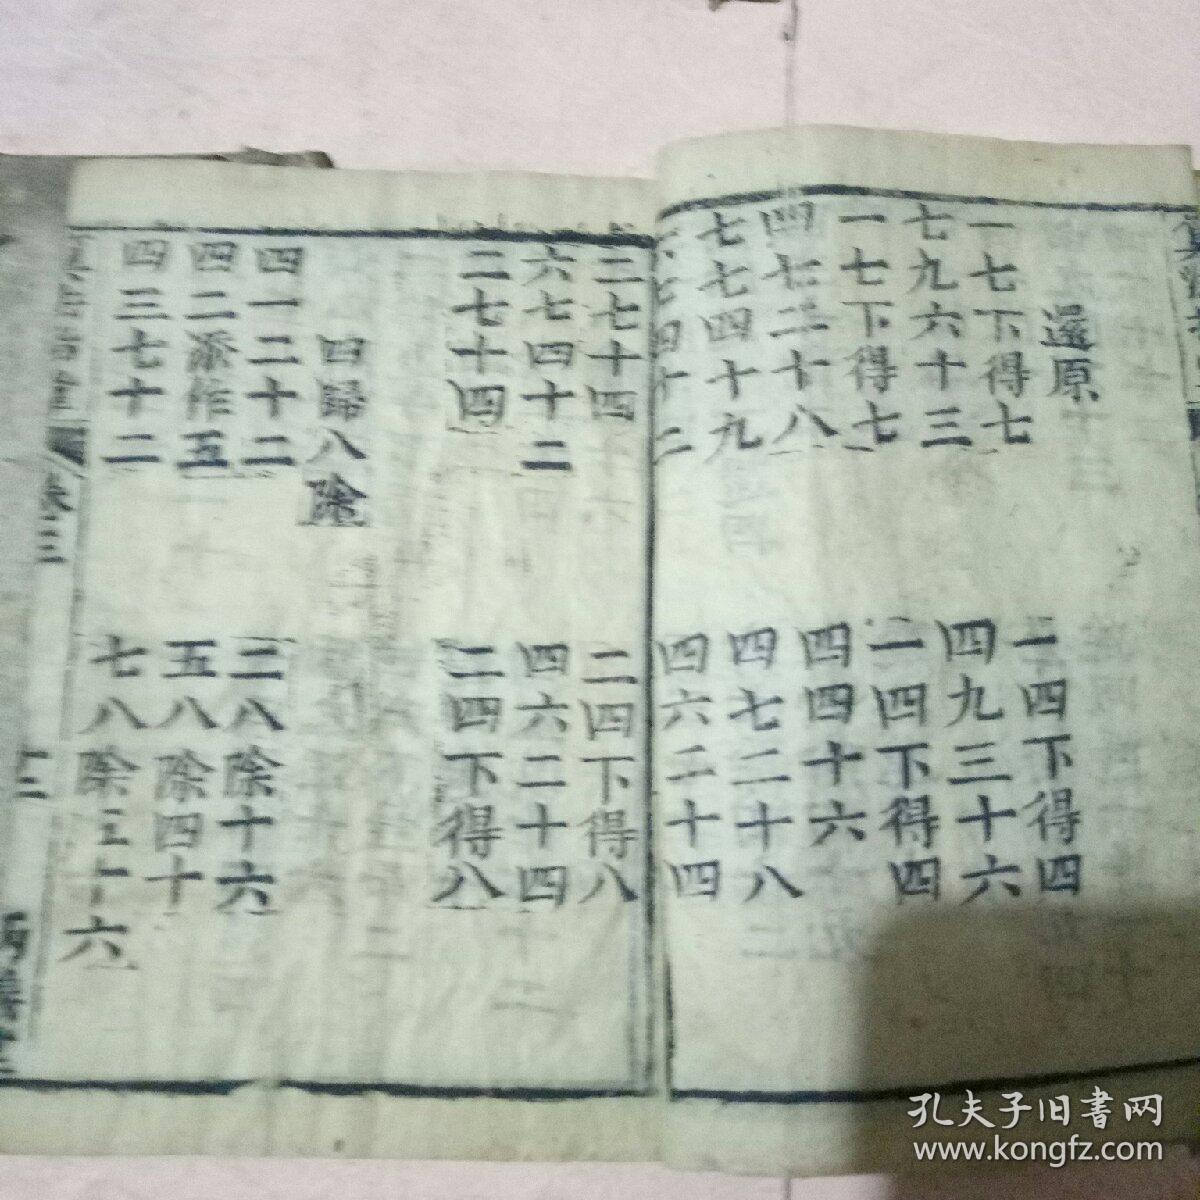 還原
一七下得七
一四下得四
七九六十三
四九三十六
一七下得七
一四下得四
四七二十八
四四十六
七七四十九
四七二十八
六七四十二
四六二十四
二七十四
二四下得八
六七四十二
四六二十四
二七十四
二四下得八
四歸八除
四一二十二
二八除十六
四二添作五
五八除四十
四三七十二
七八除五十六
卷三
十三
孔夫子旧書网
www.kongfz.com